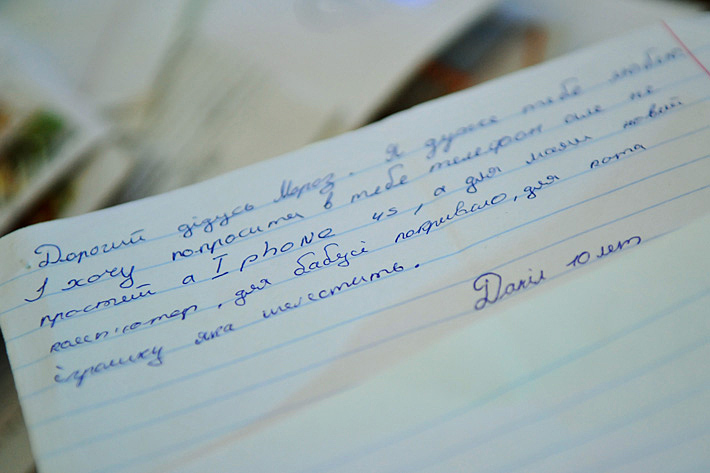 Дорогий дідусь Мороз. Я дуже тебе люблю
І хочу попросити в тебе телефон але не
простий а I phone 4s, а для мами новий
комп'ютер, для бабусі покривало, для кота
іграшку яка шелестить.
Даніл 10 лет